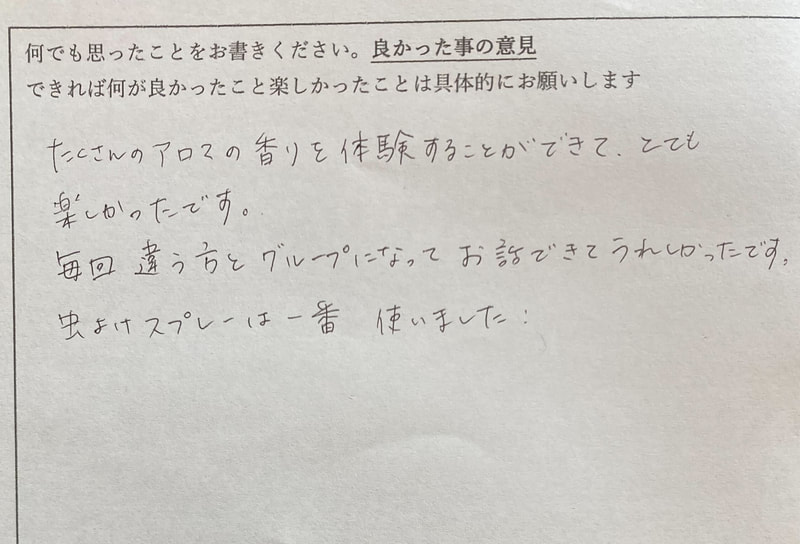 何でも思ったことをお書きください。良かった事の意見
できれば何が良かったこと楽しかったことは具体的にお願いします
たくさんのアロマの香りを体験することができて、とても
楽しかったです。
毎回 違う方と グループになって お話できてうれしかったです。
虫よけスプレーは一番 使いました！